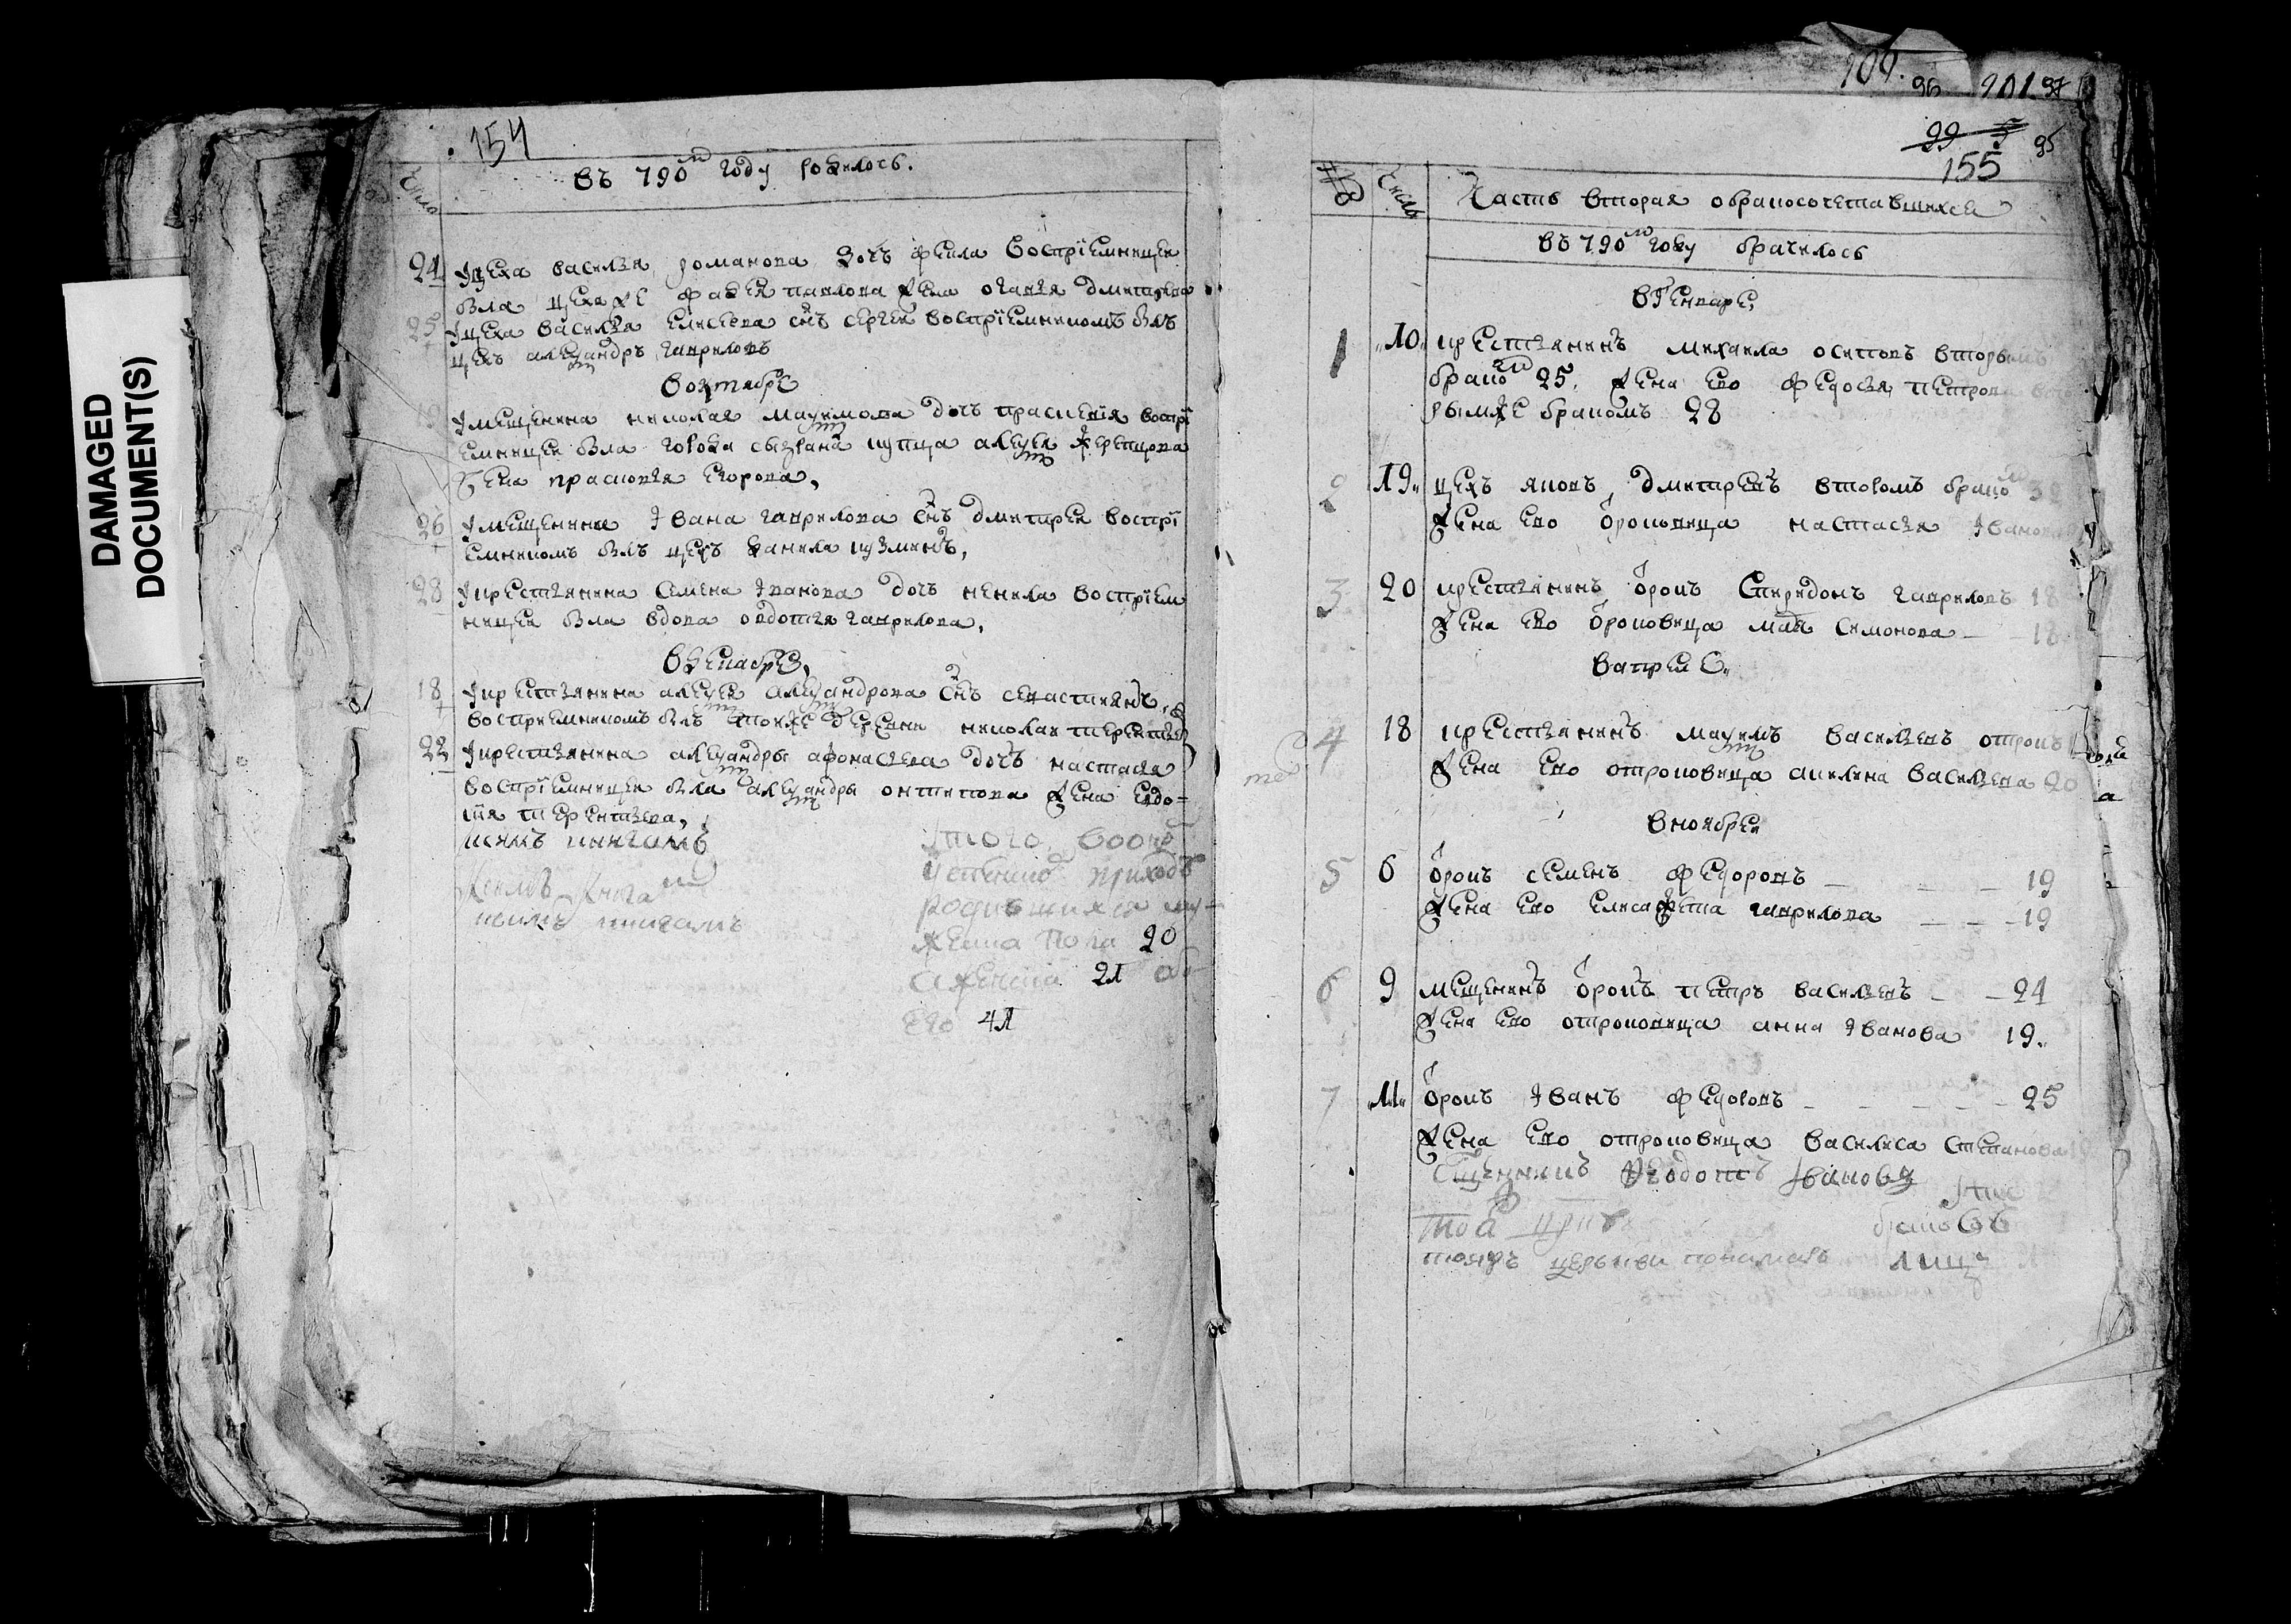 DAMAGED
DOCUMENT(S)
154
Число
въ 790м году родилось.
24 У цеха василья романова дочь фекла воспрїемницеи
была цеха же фадея павлова жена огафья дмитрева
25 У цеха василья елисеева снъ сергеи воспрїемникомъ былъ
цехъ александръ гавриловъ
в октябре
19 У мещенина николая максимова дочь прасковїя воспрї
емницеи была города сызрана купца алексея
жена прасковья егорова,
26 У мещенина Ивана гаврилова снъ дмитреи воспрї
емникомъ былъ цехъ данила кузминъ,
28 У крестьянина семена Иванова дочь ненила воспрїем
ницеи была вдова овдотья гаврилова,
в декабре,
18 У крестьянина алексея александрова снъ севастиянъ,
восприемникомъ былъ тоеже деревни николаи терентьев
22 У крестьянина александры афонасьева дочь настасья
воспрїемницеи была александры онтипова жена евдо=
кия терентьева,
к симъ книгамъ
Итого воономъ
успенско приходе
родившихся му-
жеска пола 20
а женска 21 обо-
его 41
109. 96 201 97
99 95
155
№ Число
Часть вторая о бракосочетавшихся
въ 790м году брачилось
в Генваре,
1 10 крестьянинъ михаила осиповъ вторымъ
бракомъ 25. жена ево федосья петрова вто
рымже бракомъ 28
2 19 цехъ яковъ дмитревъ второмъ бракомъ 32
жена ево отроковица настасья Иванова
3 20 крестьянинъ отрокъ Спиридонъ гавриловъ 18
жена ево отроковица марья симонова 18
в апреле.
4 18 крестьянинъ максимъ васильевъ отрокъ
жена ево отроковица акилина васильева 20
в ноябре
5 6 отрокъ семенъ федоровъ 19
жена ево елисавета гаврилова 19
6 9 мещенинъ отрокъ петръ васильевъ 24
жена ево отроковица анна Иванова 19
7 11 отрокъ Иванъ федоровъ 25
жена ево отроковица василиса степанова
Сщенникъ Феодотъ Ивановъ
тояжъ церькви понамарь